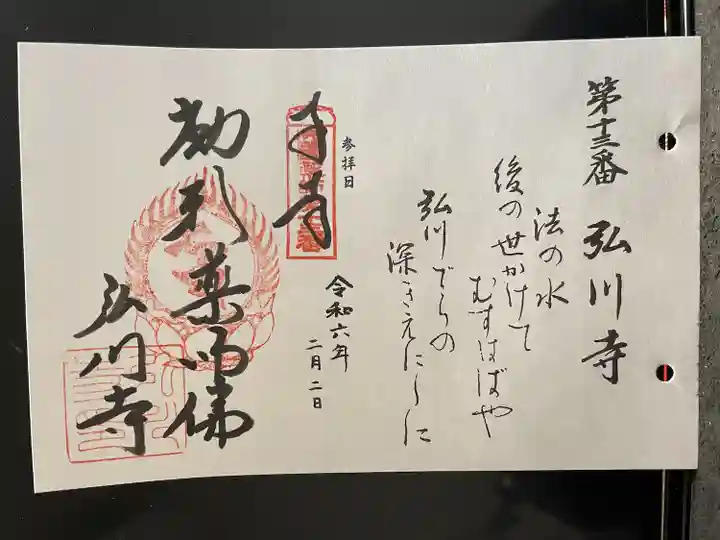 第十三番 弘川寺
法の水
後の世かけて
むすはばや
弘川でらの
深きえにしに
参拝日
令和六年
二月二日
奉拝
薬師佛
弘川寺